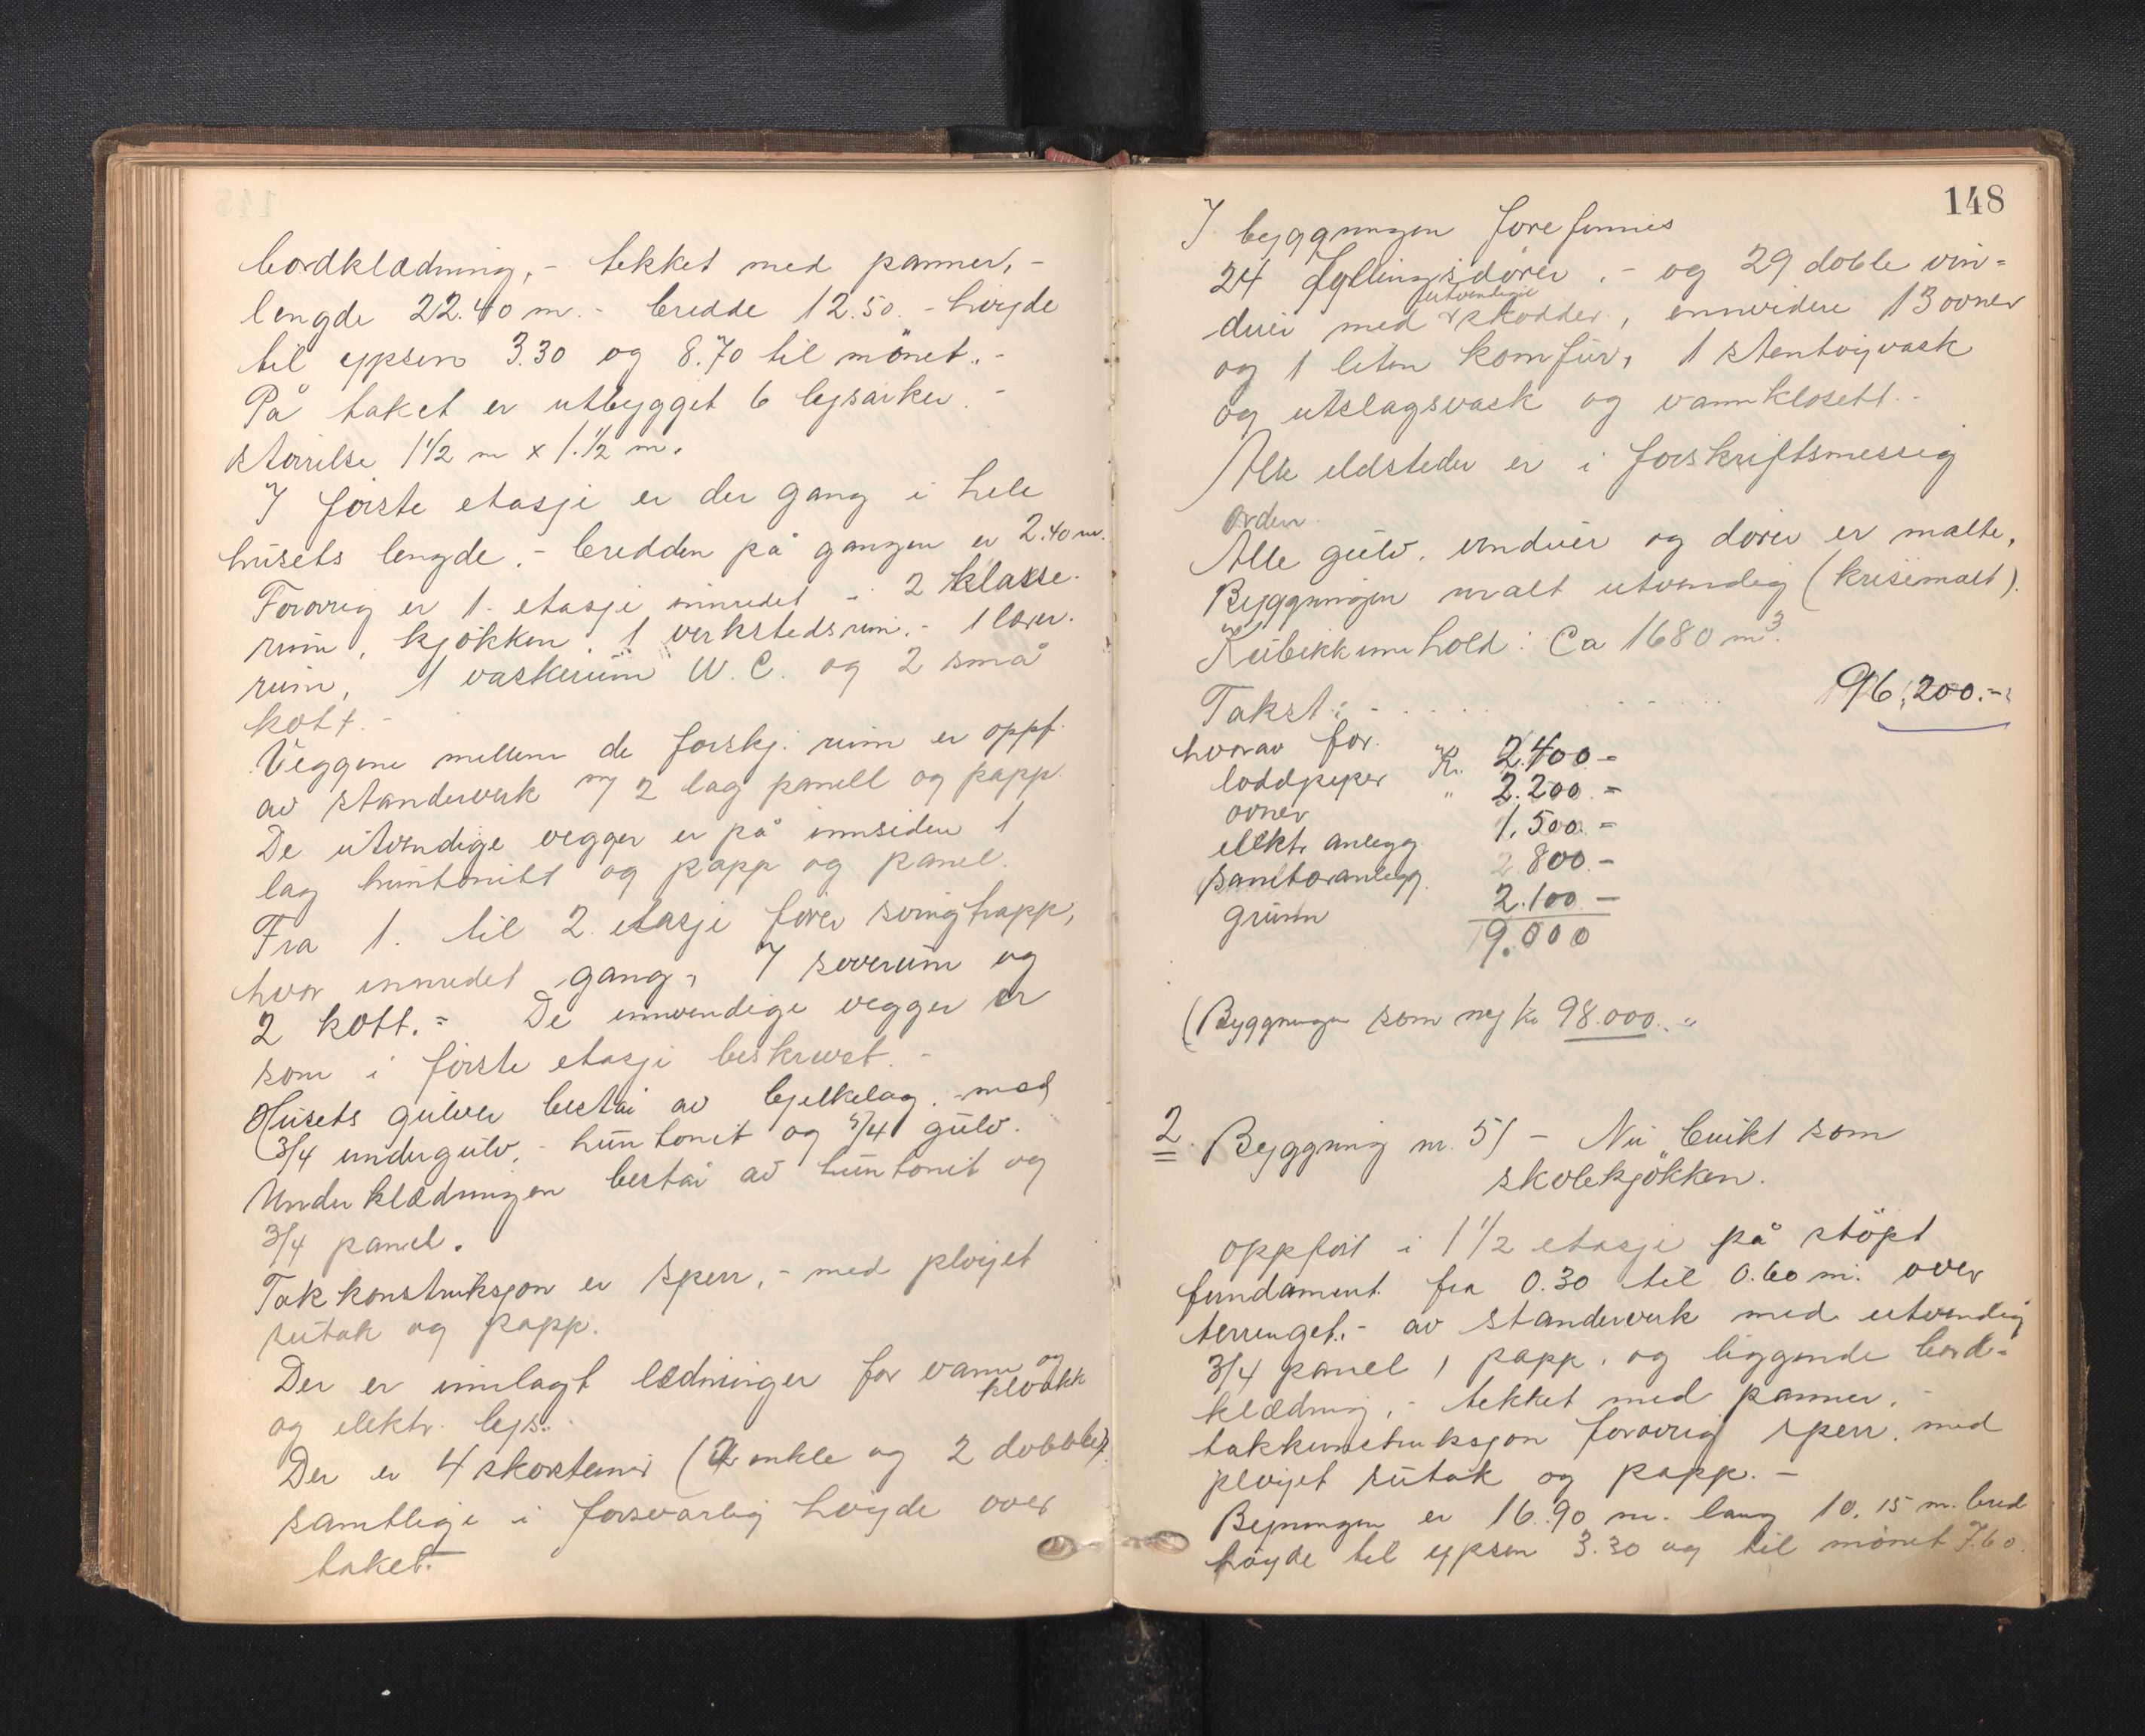 bordklædning, - tekket med panner, -
lengde 22.40 m. - bredde 12.50. - höyde
til gpsen 3.30 og 8.70 til mönet. -
På taket er utbygget 6 lysarker. -
störrelse 1 1/2 m x 1.1/2 m.
I förste etasje er der gang i hele
husets lengde. - bredden på gangen er 2.40 m.
Forövrig er 1. etasje innredet - i 2 klasse-
rum, kjökken, 1 verkstedsrum. - 1 lærer-
rum, 1 vaskerum W.C. og 2 små
kott. -
Veggene mellem de forskj. rum er oppf.
av standerverk m/ 2 lag panell og papp
De utvendige vegger er på innsiden 1
lag huntonitt og papp og panel.
Fra 1. til 2. etasje förer svingtrapp,
hvor innredet gang, 7 soverum og
2 kott. = De innvendige vegger er
som i förste etasje beskrevet. -
Husets gulver består av bjelkelag. med
3/4 undergulv. - huntonit og 5/4 gulv.
Underklædningen består av huntonit og
3/4 panel.
Takkonstruksjon er sperr, - med plöyet
sutak og papp.
Der er innlagt ledninger for vann og
kloakk
og elektr. lys.
Der er 4 skorstener (2 enkle og 2 dobble),
samtlige i forsvarlig höyde over
taket.
148
I byggningen forefinnes
24 fyllingsdörer. - og 29 doble vin=
utvendige
duer med skodder, ennvidere 13 ovner
og 1 liten komfur, 1 stentöyvask
og utslagsvask og vannklosett. -
Alle ildsteder er i forskriftsmessig
orden.
Alle gulv, vinduer og dörer er malte,
Byggningen malt utvendig (krisemalt).
Kubikkinnhold: Ca 1680 m3.
Takst: - . . . . . . . 96,200.-
hvorav for.
loddpiper Kr. 2.400 -
ovner " 2.200. =
elektr. anlegg. 1.500. =
sanitæranlegg. 800. -
grunn 2.100 -
9.000
(Byggningen som ny kr 98.000. -
2. Byggning nr. 5/ - Nu brukt som
skolekjökken.
oppfört i 1 1/2 etasje på stöpt
fundament fra 0.30 til 0.60 m. over
terrenget. - av standerverk med utvendig
3/4 panel, papp. og liggende bord=
klædning, - tekket med panner. -
takkunstruksjon forövrig sperr. med
plöyet sutak og papp. -
Bygningen er 16.90 m. lang 10.15 m. bred
höyde til gpsen 3.30 og til mönet 7.60.